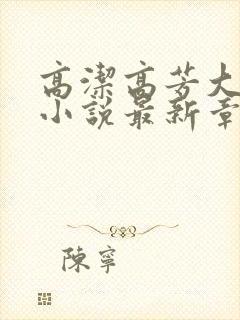 高潔高芳大
小說最新章
陳寧